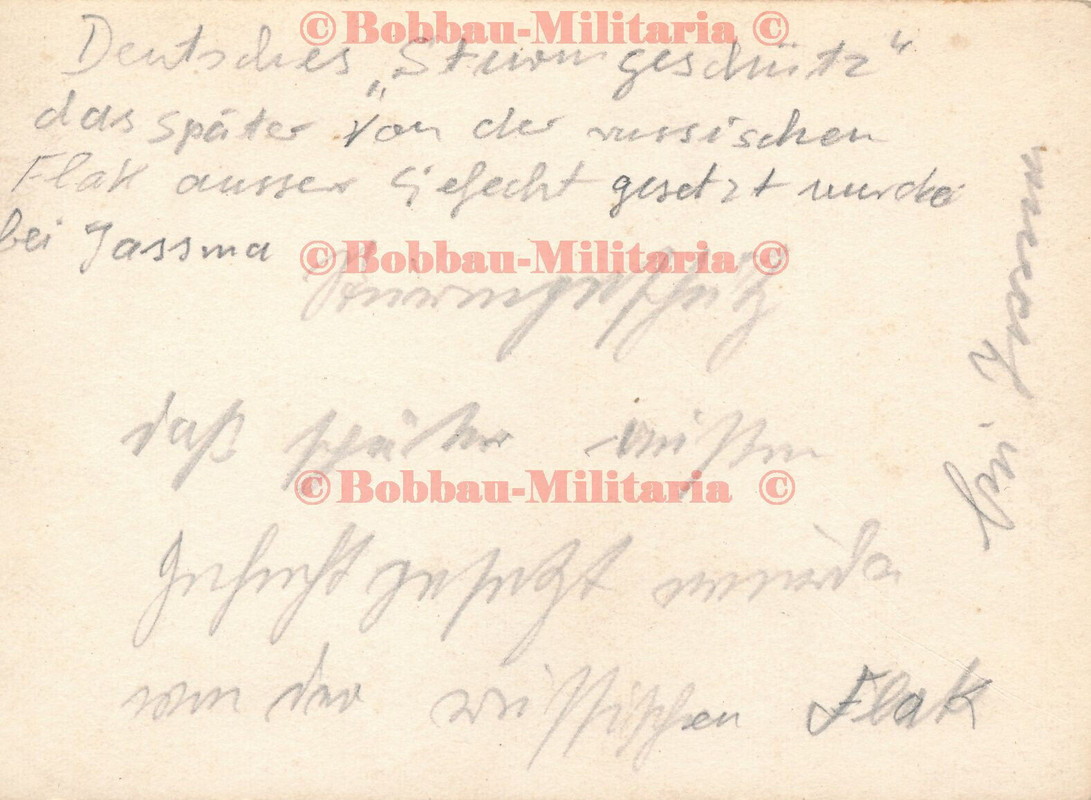 ©Bobbau-Militaria ©
Deutsches „Sturmgeschütz“
das später von der russischen
Flak ausser Gefecht gesetzt wurde
bei Jassma
©Bobbau-Militaria ©
Sturmgeschütz
daß später außer
©Bobbau-Militaria ©
Gefecht gesetzt wurde
von der russischen Flak
bei